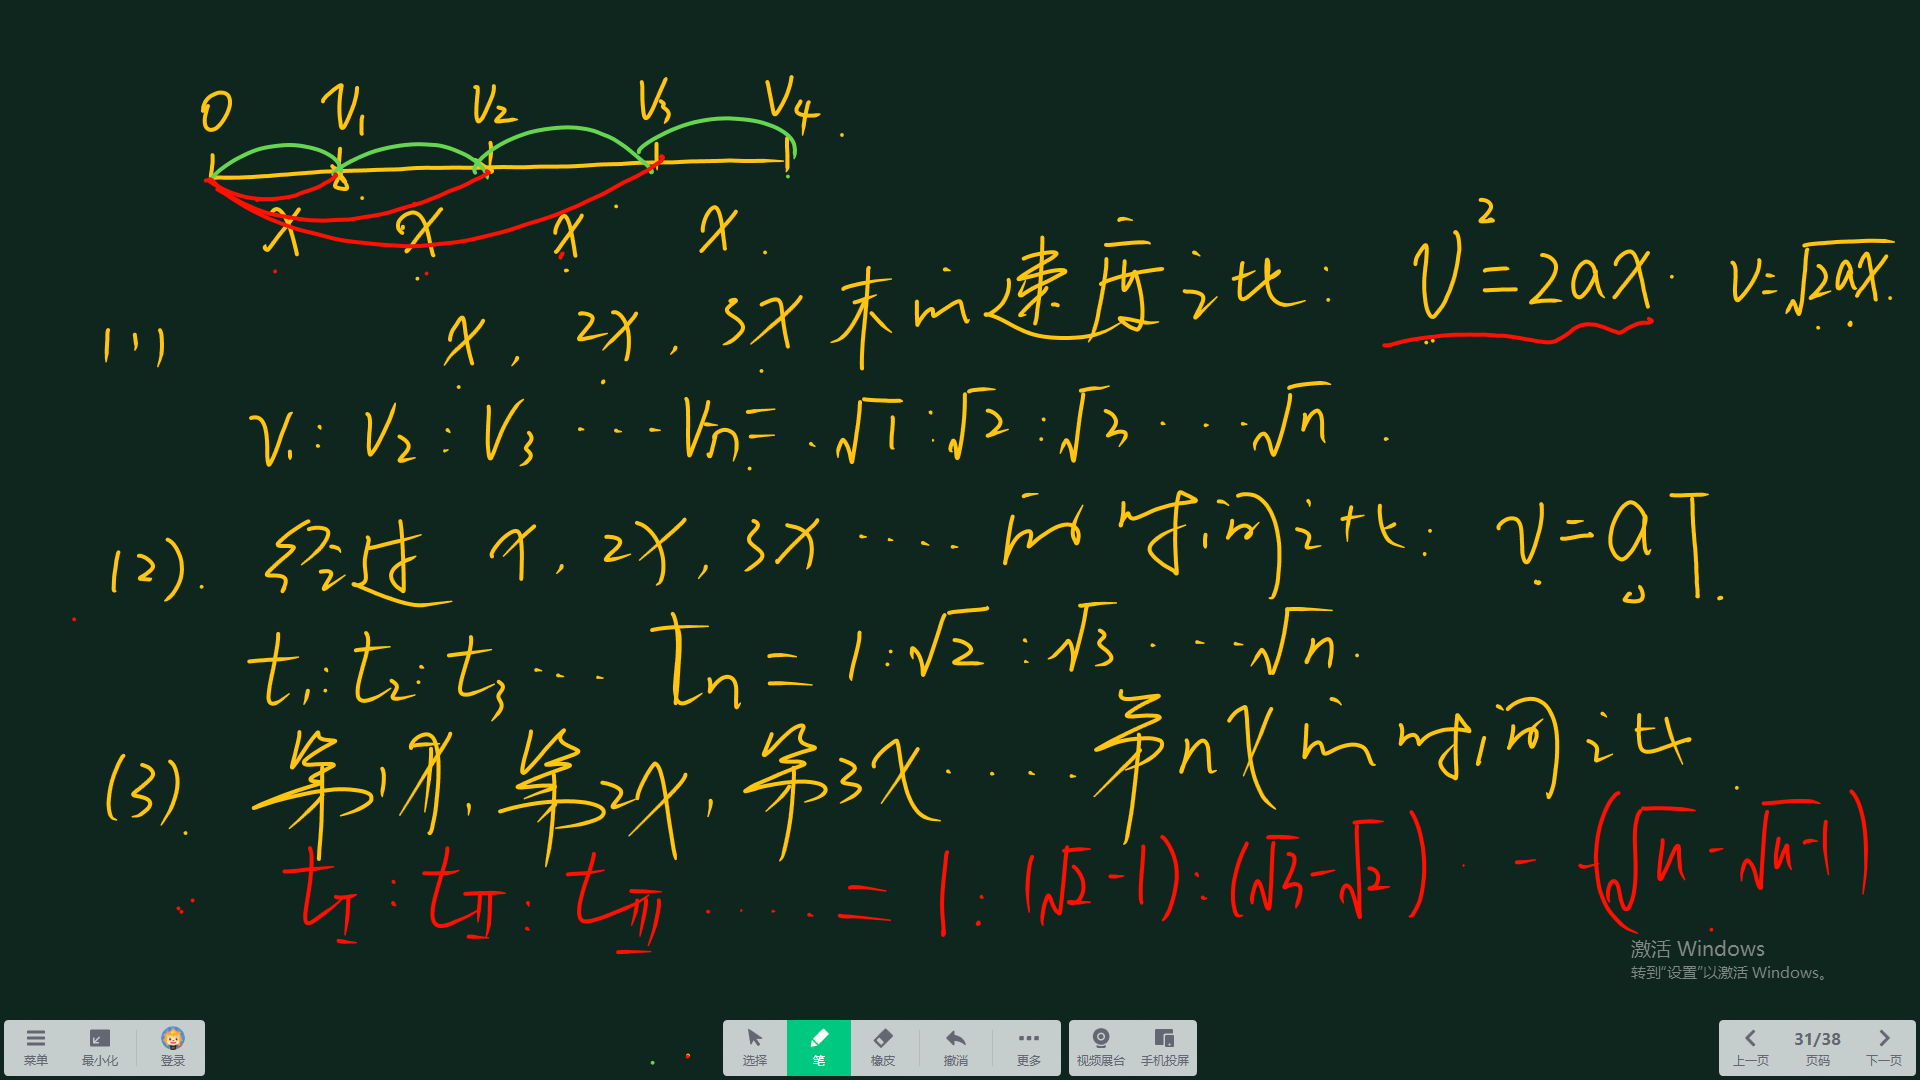 0 V₁ V₂ V₃ V₄
x x x x
(1) x, 2x, 3x 末的速度之比: V²=2ax. v=√2ax.
V₁:V₂:V₃ ⋯ Vn=√1:√2:√3 ⋯ √n.
(2). 经过 x, 2x, 3x ⋯ 的时间之比: v=aT.
t₁:t₂:t₃ ⋯ tn=1:√2:√3 ⋯ √n.
(3). 第1x, 第2x, 第3x ⋯ 第nx的时间之比
tⅠ:tⅡ:tⅢ ⋯ = 1:(√2-1):(√3-√2) ⋯ (√n-√n-1)
激活 Windows
转到“设置”以激活 Windows。
菜单 最小化 登录 选择 笔 橡皮 撤消 更多 视频展台 手机投屏 上一页 31/38 页码 下一页